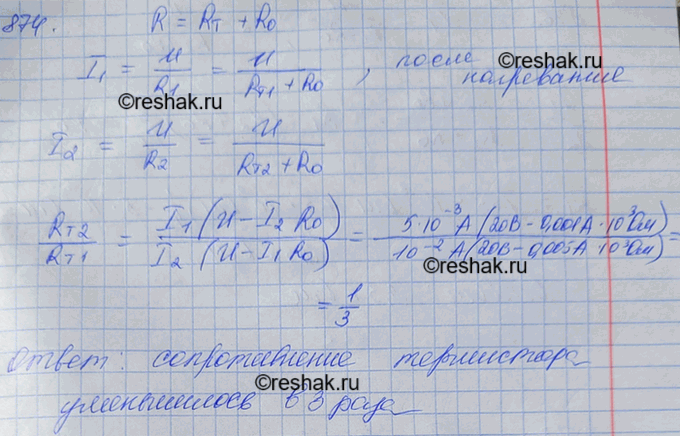 874. R = Rт + R₀
I₁ = U/R₁ = U/(Rт₁ + R₀), после
нагревание
©reshak.ru
©reshak.ru
I₂ = U/R₂ = U/(Rт₂ + R₀)
©reshak.ru
Rт₂/Rт₁ = I₁(U − I₂R₀)/I₂(U − I₁R₀) = 5·10⁻³А(20В − 0,001А·10³Ом)/10⁻²А(20В − 0,005А·10³Ом) =
= 1/3
©reshak.ru
Ответ: сопротивление термистора
©reshak.ru
уменьшилось в 3 раза